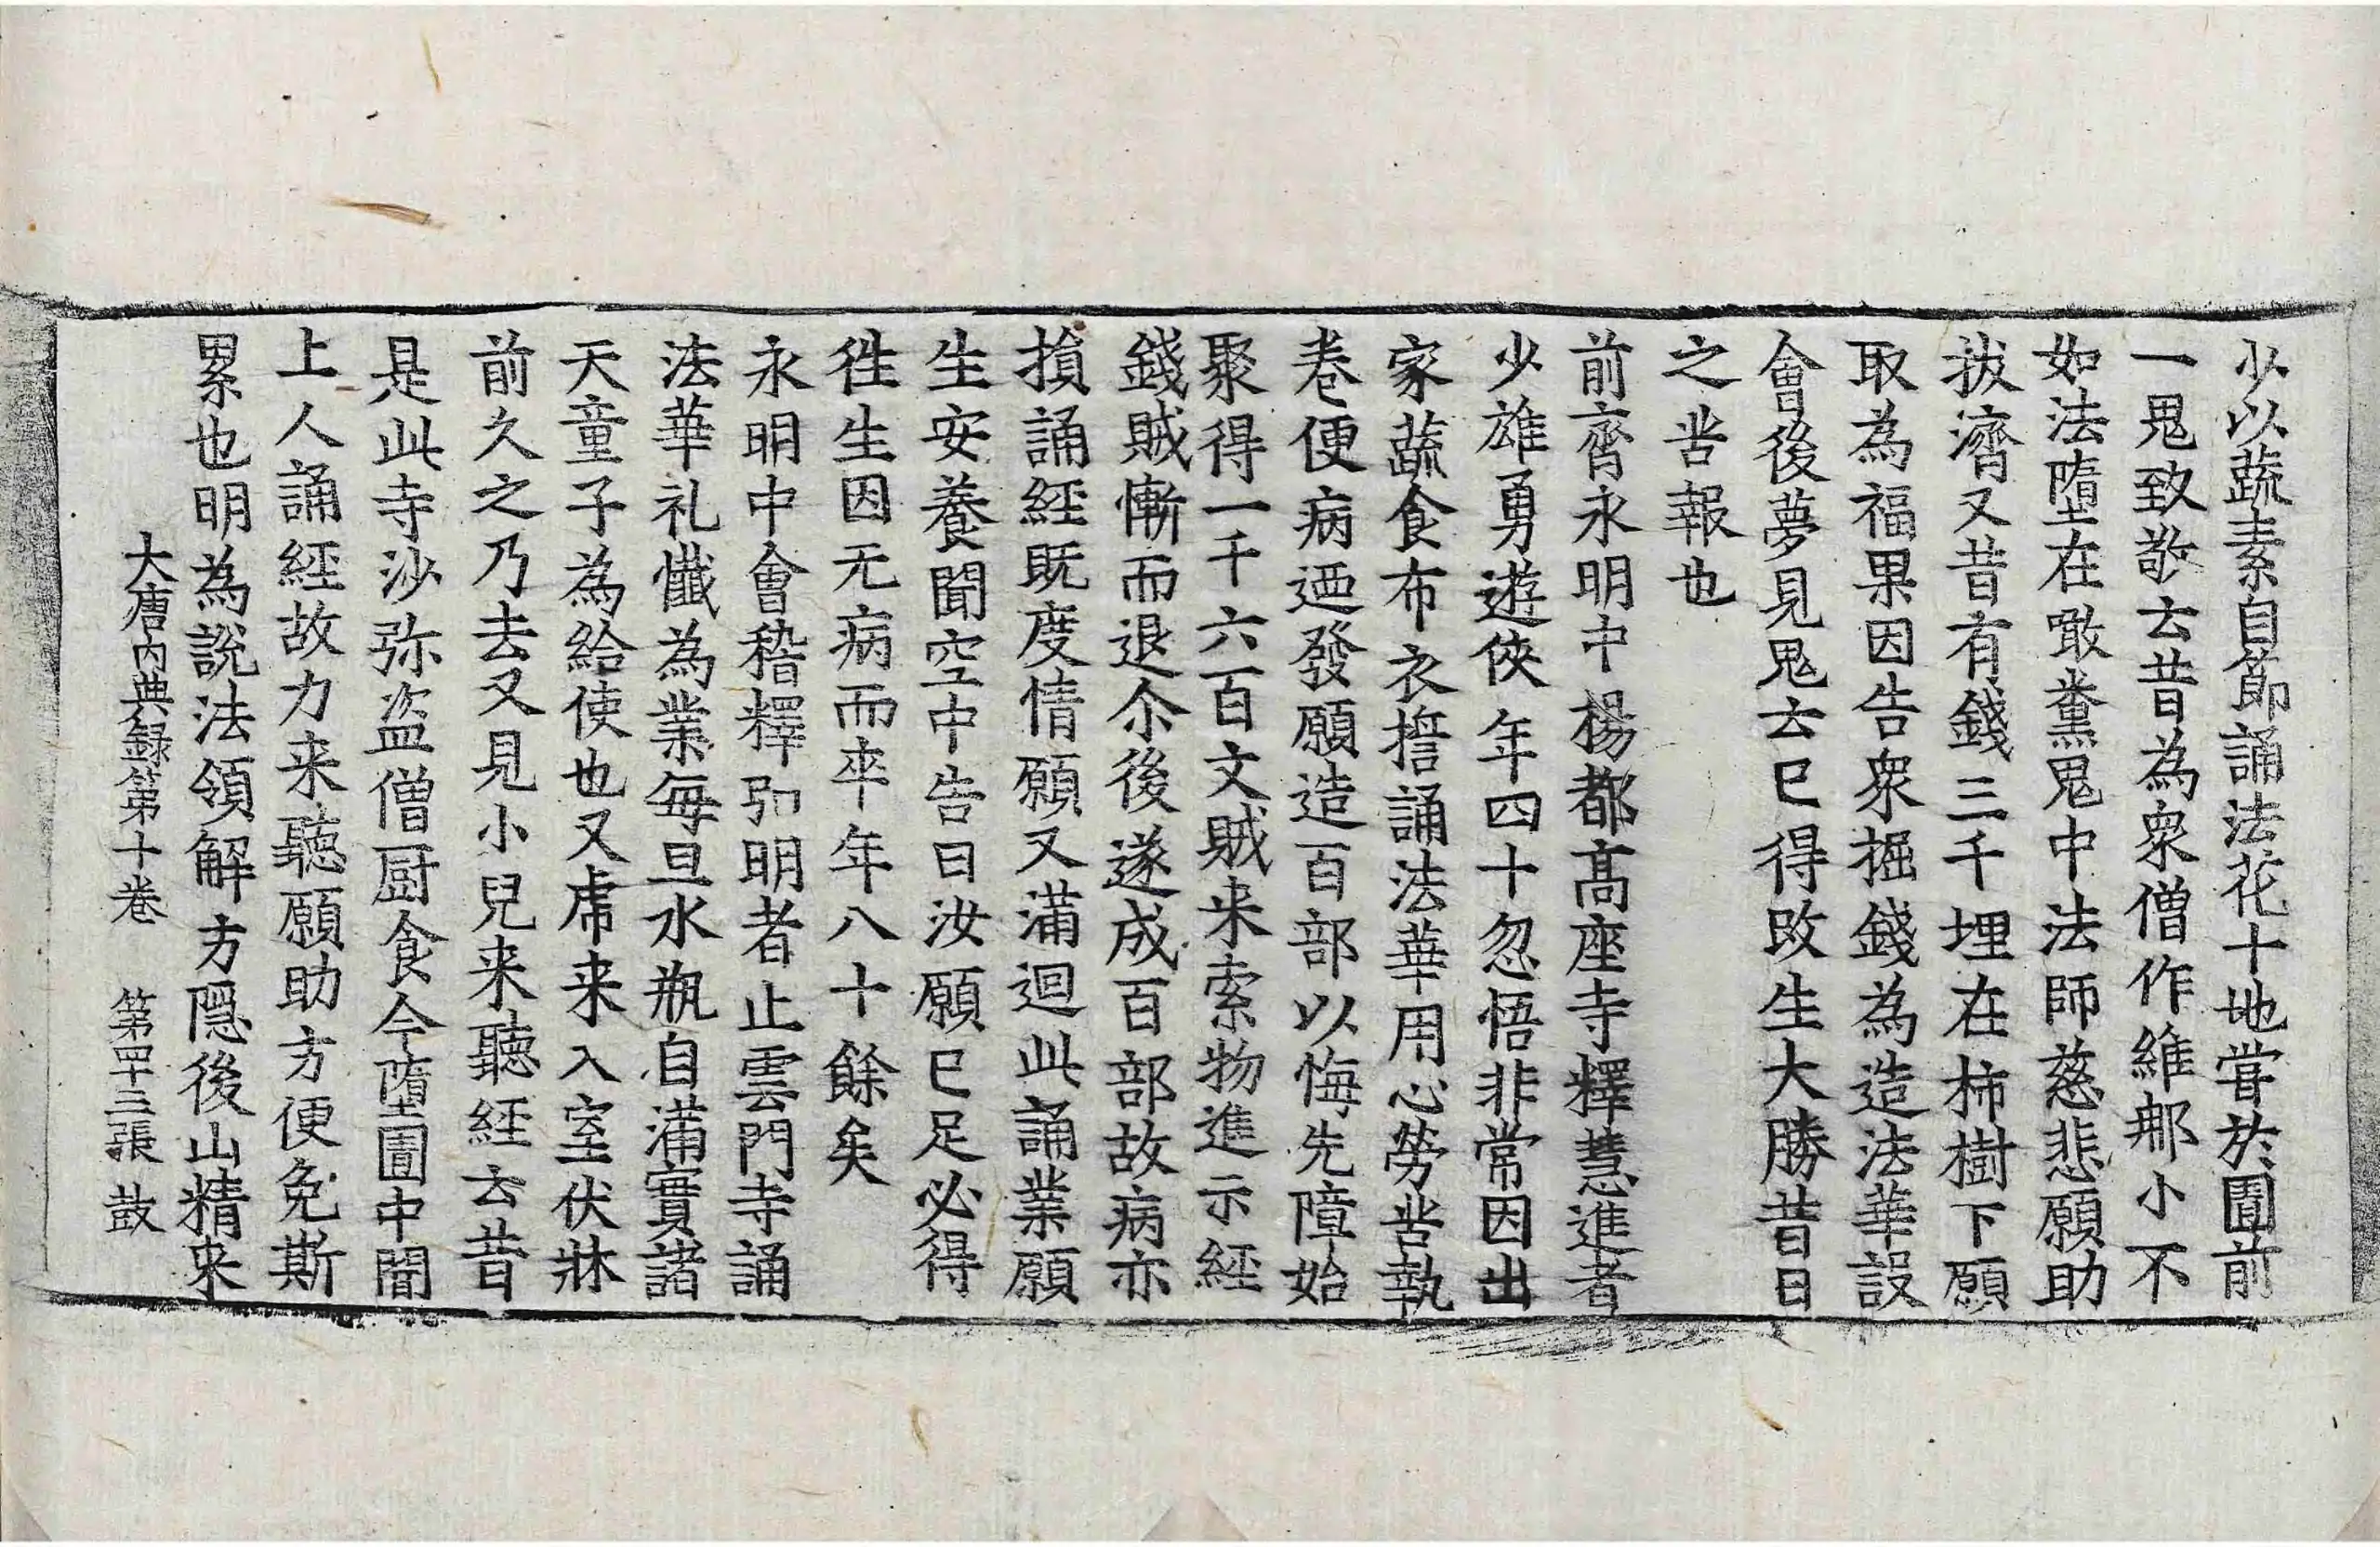 少以蔬素自節誦法花十地嘗於圊前
一鬼致敬云昔為衆僧作維那小不
如法墮在噉糞鬼中法師慈悲願助
拔濟又昔有錢三千埋在柿樹下願
取為福果因告衆掘錢為造法華設
會後夢見鬼云已得改生大勝昔日
之苦報也
前齊永明中楊都高座寺釋慧進者
少雄勇遊俠年四十忽悟非常因出
家蔬食布衣誓誦法華用心勞苦執
卷便病迺發願造百部以悔先障始
聚得一千六百文賊来索物進示經
錢賊慚而退尒後遂成百部故病亦
損誦經既度情願又滿迴此誦業願
生安養聞空中告曰汝願已足必得
徃生因无病而卒年八十餘矣
永明中會稽釋弘明者止雲門寺誦
法華礼懺為業每旦水瓶自滿實諸
天童子為給使也又虎来入室伏牀
前久之乃去又見小兒来聽經云昔
是此寺沙弥盗僧厨食今墮圊中聞
上人誦經故力来聽願助方便免斯
累也明為說法領解方隱後山精来
大唐内典録第十卷　第四十三張　鼓